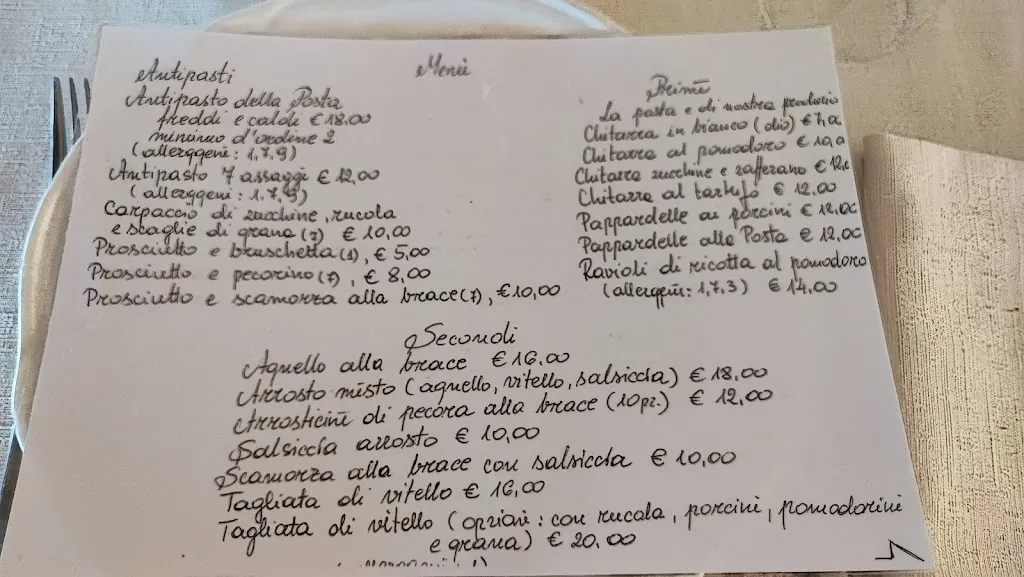 Menù
Antipasti
Antipasto della Posta
freddi e caldi € 18,00
minimo d'ordine 2
(allerggeni: 1,7,9)
Antipasto 7 assaggi € 12,00
(allerggeni: 1,7,9)
Carpaccio di zucchine, rucola
e scaglie di grana (7) € 10,00
Prosciutto e bruschetta (1), € 5,00
Prosciutto e pecorino (7), € 8,00
Prosciutto e scamorza alla brace (7), € 10,00
Primi
La pasta è di nostra produzio
Chitarra in bianco (olio) € 7,0
Chitarra al pomodoro € 10,0
Chitarra zucchine e zafferano € 12,0
Chitarra al tartufo € 12,00
Pappardelle ai porcini € 12,00
Pappardelle alla Posta € 12,00
Ravioli di ricotta al pomodoro
(allergeni: 1,7,3) € 14,00
Secondi
Agnello alla brace € 16,00
Arrosto misto (agnello, vitello, salsiccia) € 18,00
Arrosticini di pecora alla brace (10pz.) € 12,00
Salsiccia arrosto € 10,00
Scamorza alla brace con salsiccia € 10,00
Tagliata di vitello € 16,00
Tagliata di vitello (opzioni: con rucola, porcini, pomodorini
e grana) € 20,00